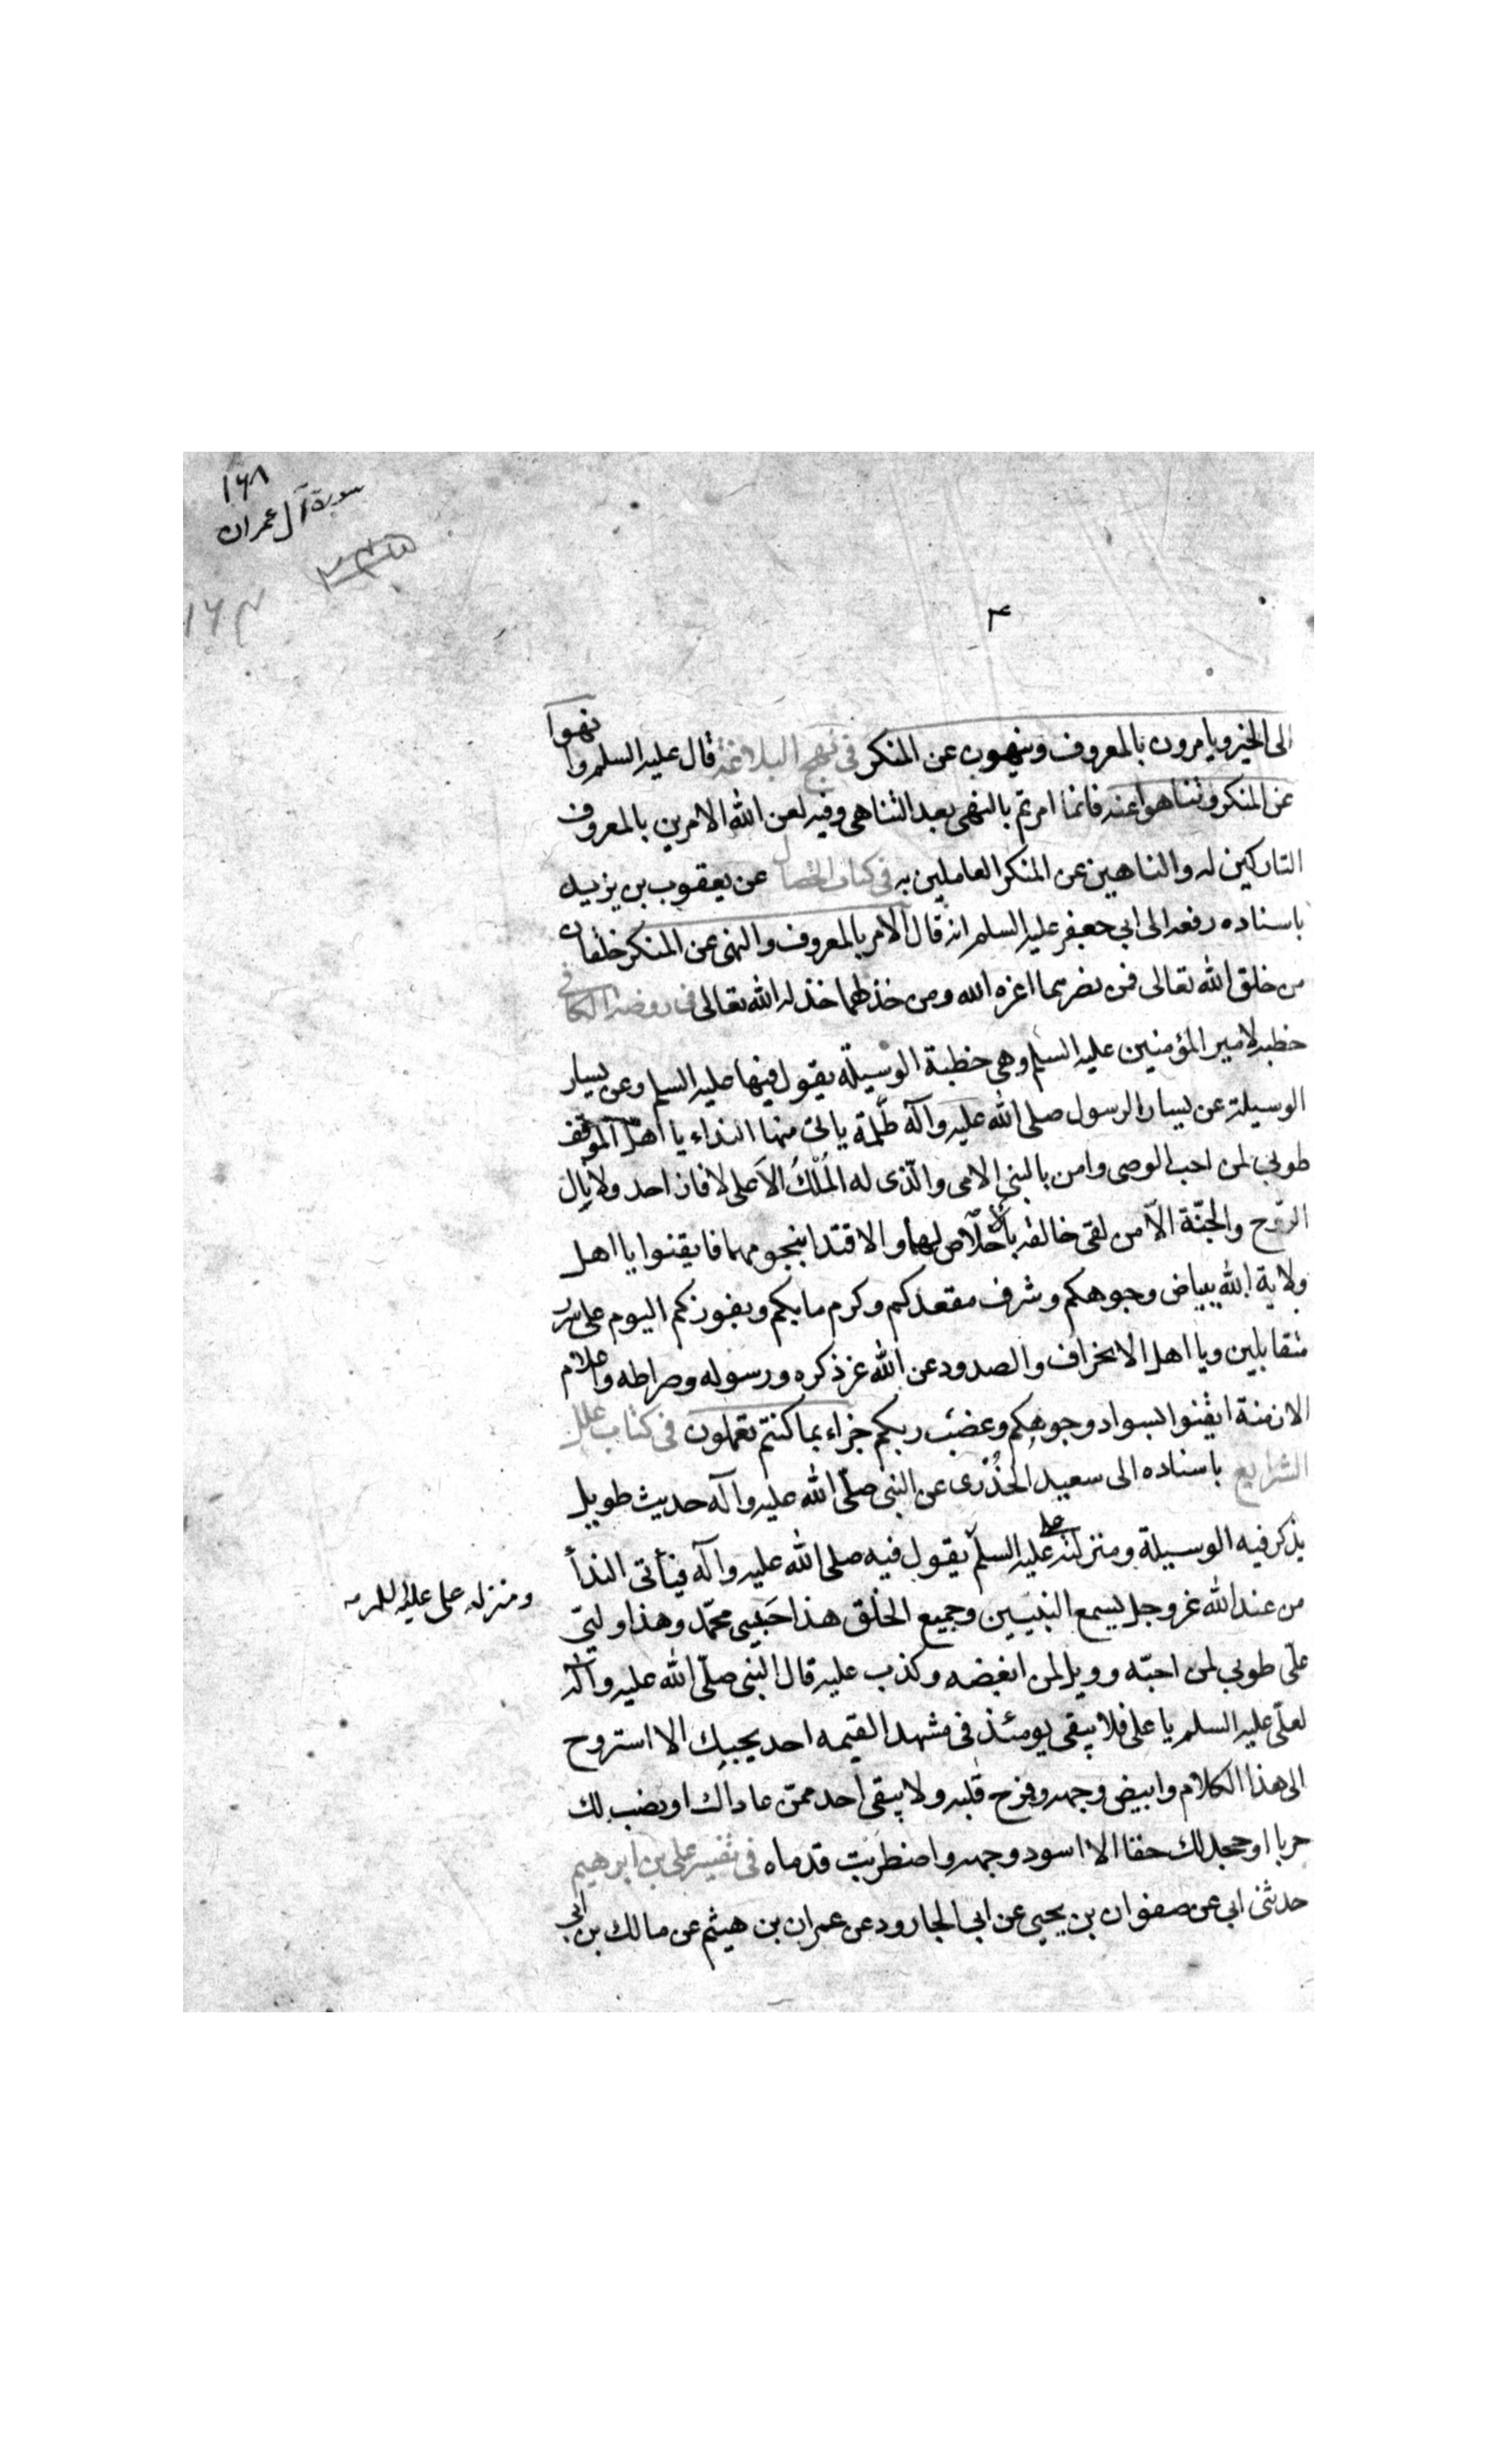 ١٦٨
سورة آل عمران
١٦٣
الى الخير ويامرون بالمعروف وينهون عن المنكر فى نهج البلاغة قال عليه السلم وانهوا
عن المنكر وتناهوا عنه فانما امرتم بالنهى بعد التناهى وفيه لعن الله الامرين بالمعروف
التاركين له والناهين عن المنكر العاملين به فى كتاب الخصال عن يعقوب بن يزيد
باسناده رفعه الى ابى جعفر عليه السلم انه قال الامر بالمعروف والنهى عن المنكر خلقان
من خلق الله تعالى فمن نصرهما اعزه الله ومن خذلهما خذله الله تعالى فى روضة الكافى
خطبة لامير المؤمنين عليه السلم وهى خطبة الوسيلة يقول فيها عليه السلم وعن يسار
الوسيلة عن يسار الرسول صلى الله عليه وآله ظلمة ياتى منها النداء يا اهل الموقف
طوبى لمن احب الوصى وامن بالنبى الامى والّذى له المُلْكُ الاَعلى لا فاز احد ولا نال
الرّوح والجنّة الاّ من لقى خالقه بالاخلاص لهما والاقتدا بنجومهما فايقنوا يا اهل
ولاية الله ببياض وجوهكم وشرف مقعدكم وكرم مابكم وبفوزكم اليوم على سرر
متقابلين ويا اهل الانحراف والصدود عن الله عز ذكره ورسوله وصراطه واعلام
الازمنة ايقنوا بسواد وجوهكم وغضب ربكم جزاء بما كنتم تعملون فى كتاب علل
الشرايع باسناده الى سعيد الخُدْرى عن النبى صلّى الله عليه وآله حديث طويل
يذكر فيه الوسيلة ومنزلة على عليه السلم يقول فيه صلى الله عليه وآله فيأتى الندأ
ومنزله على عليه السلم
من عند الله عز وجل يسمع النبيين وجميع الخلق هذا حَبيبى محمّد وهذا وليّى
علّى طوبى لمن احبّه وويل لمن ابغضه وكذب عليه قال النبى صلّى الله عليه وآله
لعلّى عليه السلم يا على فلا يبقى يومئذ فى مشهد القيمه احد يحبك الا استروح
الى هذا الكلام وابيض وجهه وفرح قلبه ولا يبقى احد ممّن عاداك او نصب لك
حربا او جحد لك حقا الا اسود وجهه واضطربت قدماه فى تفسير على بن ابرهيم
حدثنى ابى عن صفوان بن يحيى عن ابى الجارود عن عمران بن هيثم عن مالك بن ابى